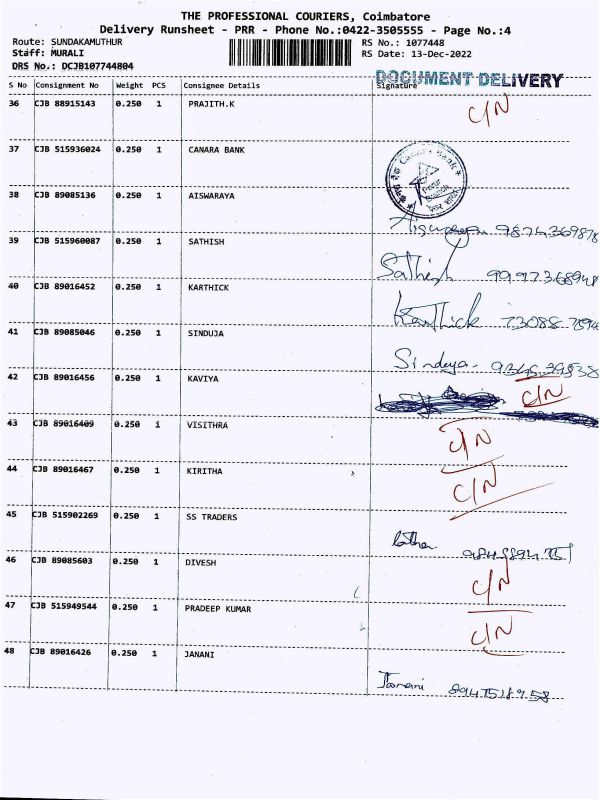 THE PROFESSIONAL COURIERS, Coimbatore
Delivery Runsheet - PRR - Phone No.:0422-3505555 - Page No.:4
Route: SUNDAKAMUTHUR RS No.: 1077448
Staff: MURALI RS Date: 13-Dec-2022
DRS No.: DCJB107744804
DOCUMENT DELIVERY
S No Consignment No Weight PCS Consignee Details Signature
36 CJB 88915143 0.250 1 PRAJITH.K C/N
37 CJB 515936024 0.250 1 CANARA BANK
Canara Bank
38 CJB 89085136 0.250 1 AISWARAYA
39 CJB 515960087 0.250 1 SATHISH Sathish
40 CJB 89016452 0.250 1 KARTHICK Karthick
41 CJB 89085046 0.250 1 SINDUJA
42 CJB 89016456 0.250 1 KAVIYA C/N
43 CJB 89016409 0.250 1 VISITHRA C/N
44 CJB 89016467 0.250 1 KIRITHA C/N
45 CJB 515902269 0.250 1 SS TRADERS
46 CJB 89085603 0.250 1 DIVESH C/N
47 CJB 515949544 0.250 1 PRADEEP KUMAR C/N
48 CJB 89016426 0.250 1 JANANI